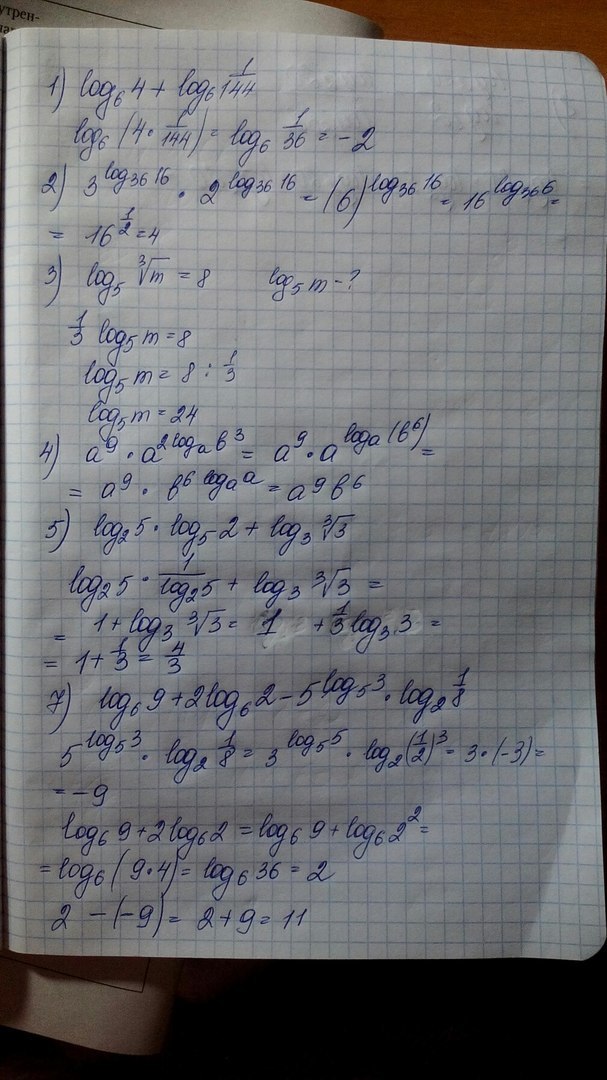 утрен-
1) log₆ 4 + log₆ 1/144
log₆ (4 · 1/144) = log₆ 1/36 = -2
2) 3^(log₃₆ 16) · 2^(log₃₆ 16) = (6)^(log₃₆ 16) = 16^(log₃₆ 6) =
= 16^(1/2) = 4
3) log₅ ∛m = 8 log₅ m - ?
1/3 log₅ m = 8
log₅ m = 8 : 1/3
log₅ m = 24
4) a⁹ · a^(2 logₐ b³) = a⁹ · a^(logₐ (b⁶)) =
= a⁹ · b^(6 logₐ a) = a⁹ b⁶
5) log₂ 5 · log₅ 2 + log₃ ∛3
log₂ 5 · 1/(log₂ 5) + log₃ ∛3 =
= 1 + log₃ ∛3 = 1 + 1/3 log₃ 3 =
= 1 + 1/3 = 4/3
7) log₆ 9 + 2 log₆ 2 - 5^(log₅ 3) · log₂ 1/8
5^(log₅ 3) · log₂ 1/8 = 3^(log₅ 5) · log₂ (1/2)³ = 3 · (-3) =
= -9
log₆ 9 + 2 log₆ 2 = log₆ 9 + log₆ 2² =
= log₆ (9 · 4) = log₆ 36 = 2
2 - (-9) = 2 + 9 = 11